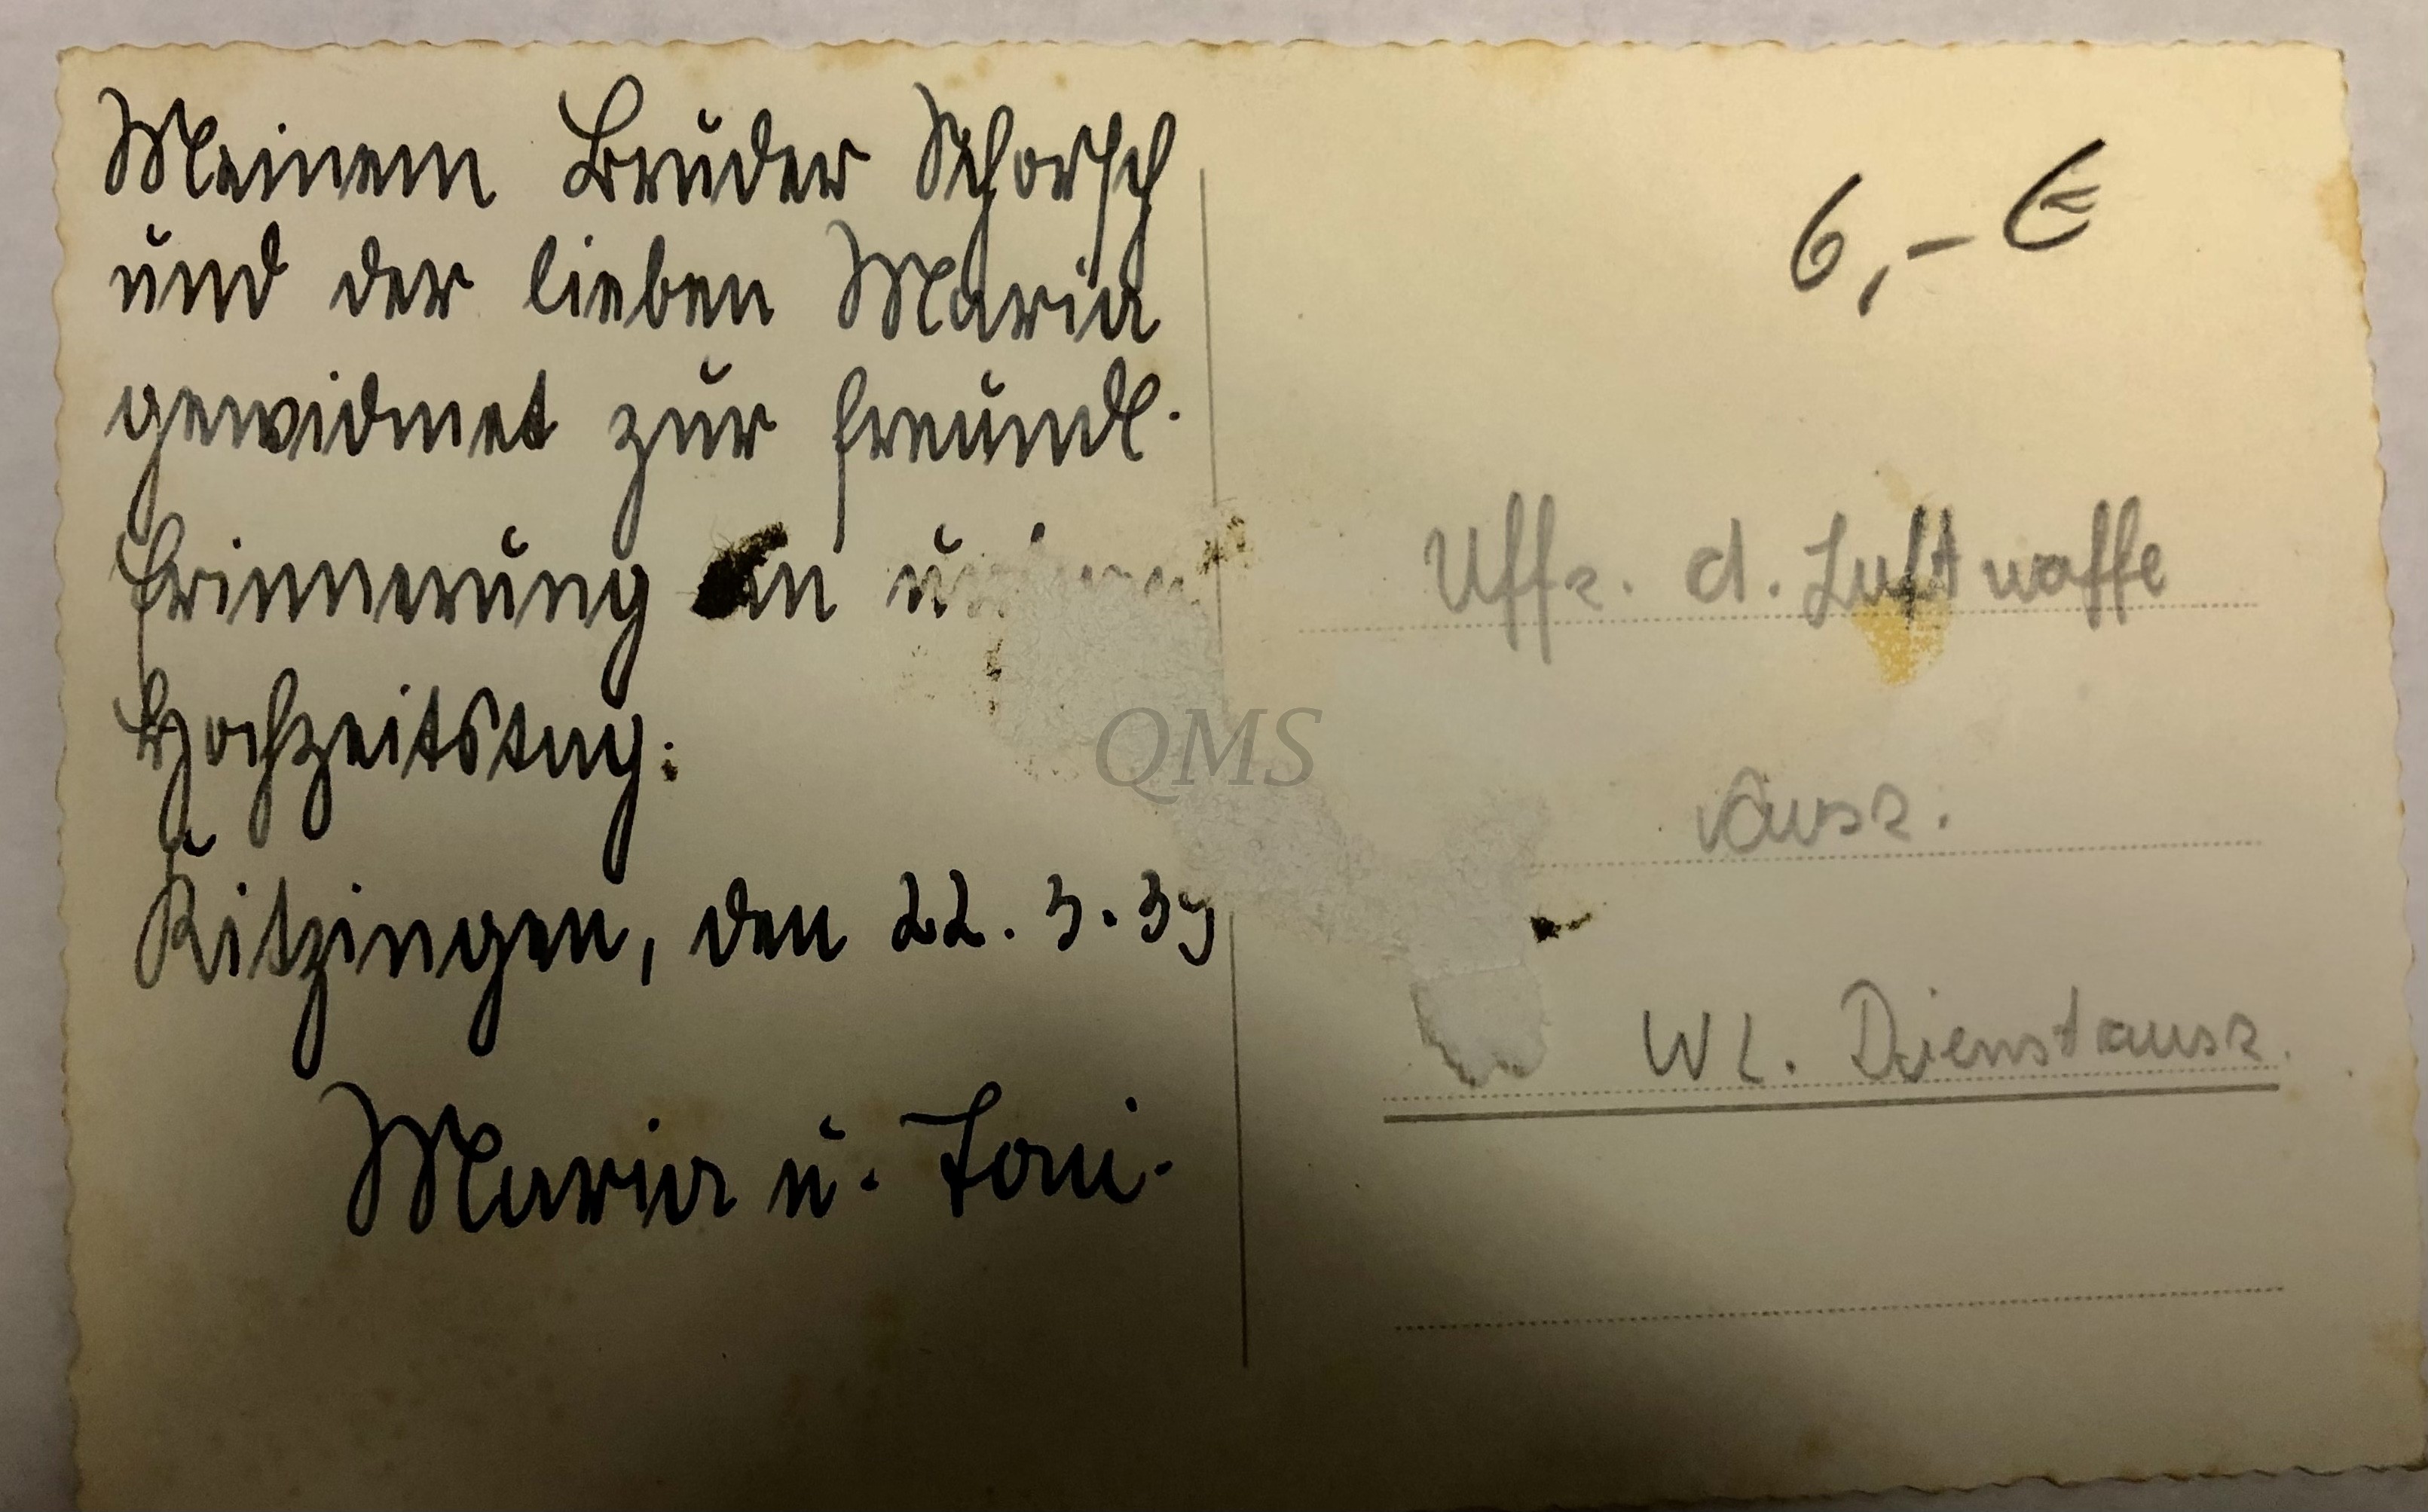 Meinem Bruder Schorsch
und der lieben Maria
gewidmet zur freundl.
Erinnerung an
Hochzeitstag:
Kitzingen, den 22. 3. 39
Maria u. Toni.
6,- €
Uffz. d. Luftwaffe
Ausz.
WL. Dienstausz.
QMS